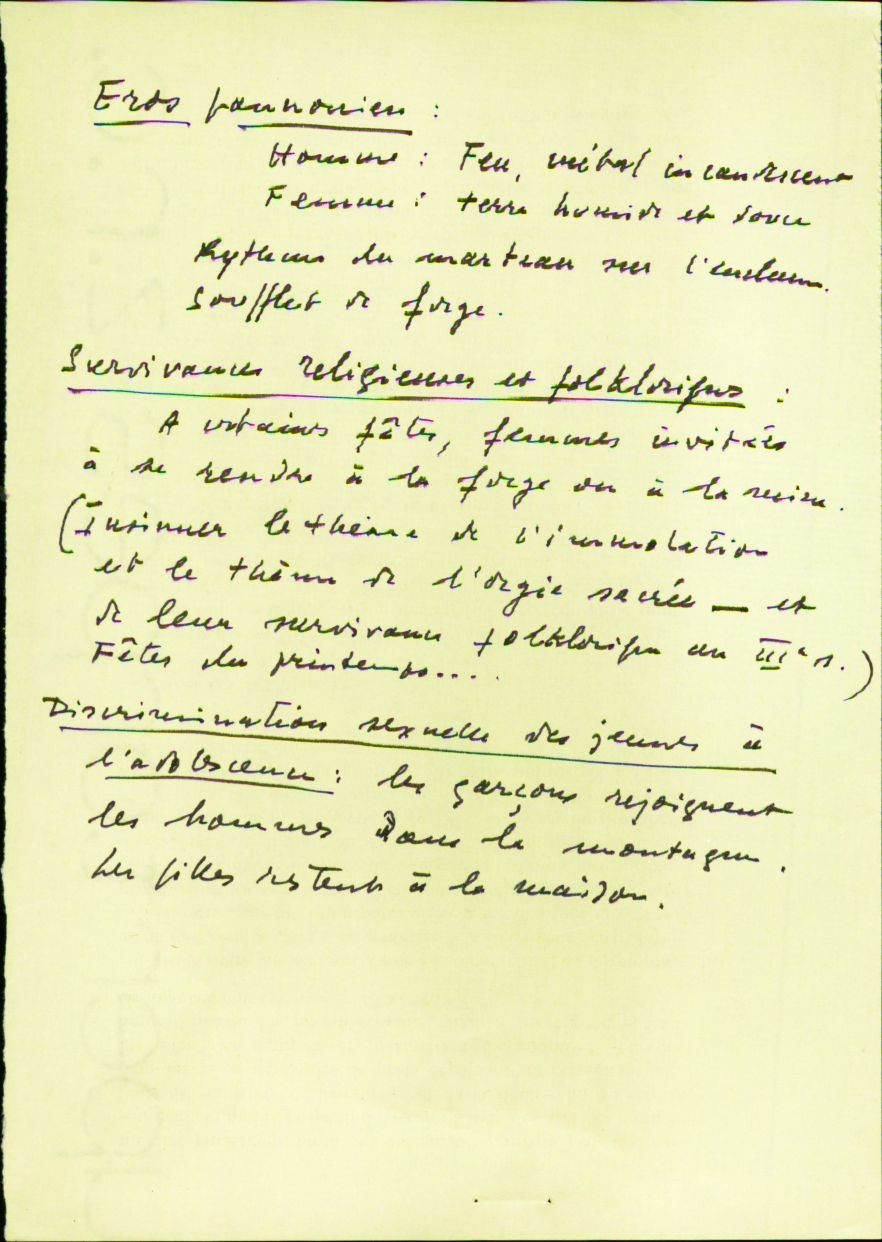 Eros pannonien :
Homme : Feu, métal incandescent
Femme : terre humide et douce
Rythme du marteau sur l'enclume.
Soufflet de forge.
Survivances religieuses et folkloriques :
A certaines fêtes, femmes invitées
à se rendre à la forge ou à la mine.
(Insinuer le thème de l'immolation
et le thème de l'orgie sacrée — et
de leur survivance folklorique au IIIe s.)
Fêtes du printemps....
Discrimination sexuelle des jeunes à
l'adolescence : les garçons rejoignent
les hommes dans la montagne.
Les filles restent à la maison.